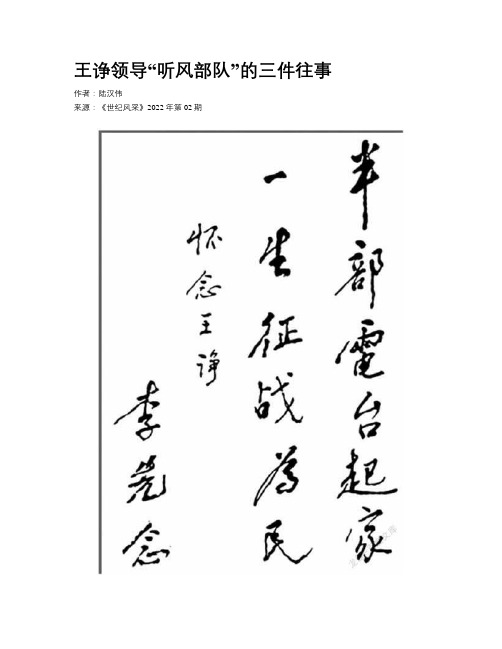 王诤领导“听风部队”的三件往事
作者:陆汉伟
来源:《世纪风采》2022年第02期
半部電台起家
一生征战為民
怀念王诤
李先念